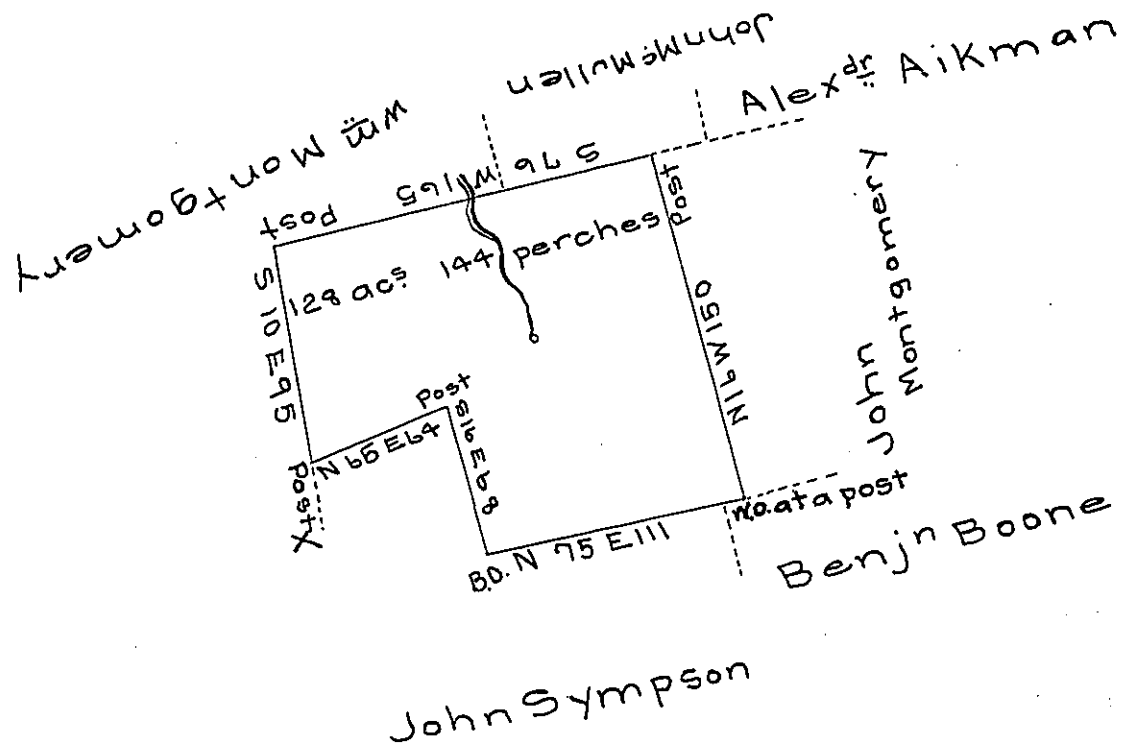 John McMullen
Alexdr: Aikman
Wm Montgomery
S 76 W 165
Post
Post
128 acs. 144 perches
S 10 E 95
N 16 W 150
John
Montgomery
Post
N 65 E 64
S 16 E 68
Post X
W.O. at a post
B.O. N 75 E 111
Benjn Boone
John Sympson